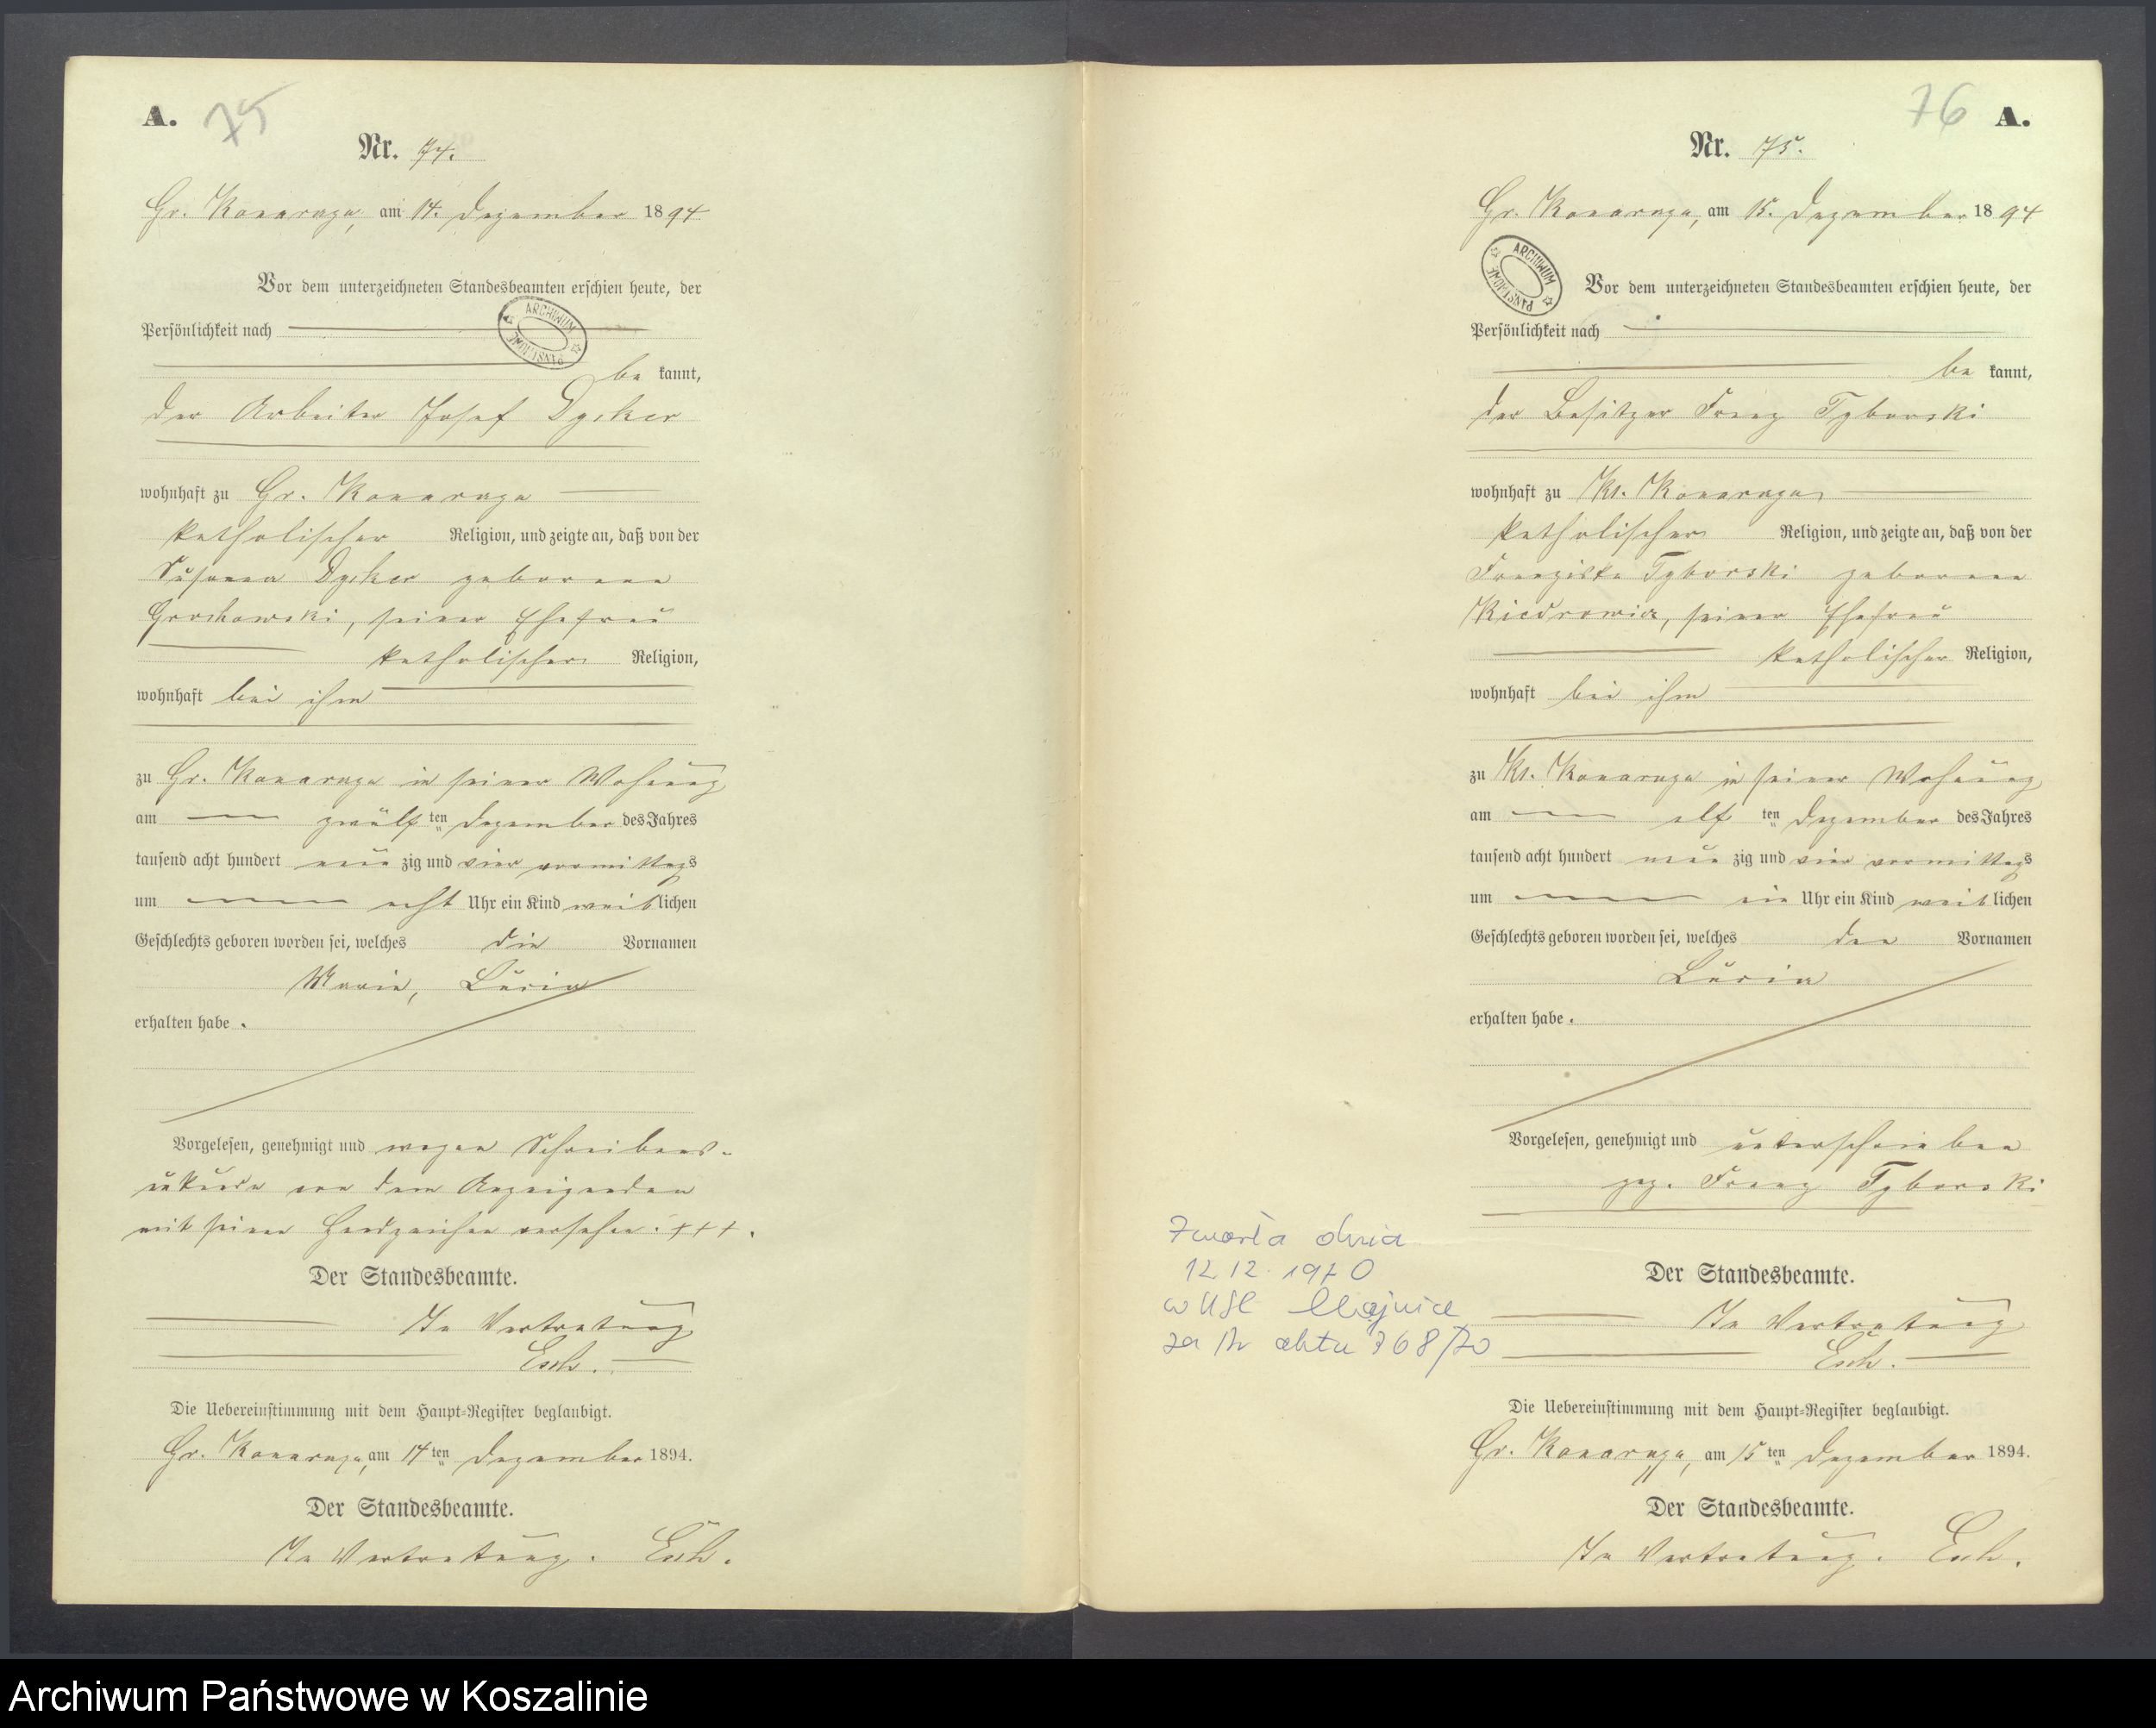 A. 75
Nr. 74.
Gr. Konarczyn, am 14. Dezember 1894
Vor dem unterzeichneten Standesbeamten erschien heute, der
Persönlichkeit nach
ARCHIWUM PAŃSTWOWE
be kannt,
der Arbeiter Josef Dycker
wohnhaft zu Gr. Konarczyn
katholischer Religion, und zeigte an, daß von der
Susanna Dycker geborene
Grochowski, seiner Ehefrau
katholischer Religion,
wohnhaft bei ihm
zu Gr. Konarczyn in seiner Wohnung
am zwölf ten Dezember des Jahres
tausend acht hundert neun zig und vier vormittags
um acht Uhr ein Kind weiblichen
Geschlechts geboren worden sei, welches die Vornamen
Marie, Lucia
erhalten habe.
Vorgelesen, genehmigt und wegen Schreibens-
unkunde von dem Anzeigenden
mit seinem Handzeichen versehen. +++.
Der Standesbeamte.
In Vertretung
Esch.
Die Uebereinstimmung mit dem Haupt-Register beglaubigt.
Gr. Konarczyn, am 14ten Dezember 1894.
Der Standesbeamte.
In Vertretung. Esch.
76 A.
Nr. 75.
Gr. Konarczyn, am 15. Dezember 1894
ARCHIWUM PAŃSTWOWE
Vor dem unterzeichneten Standesbeamten erschien heute, der
Persönlichkeit nach
be kannt,
der Besitzer Franz Tyborski
wohnhaft zu Kl. Konarczyn
katholischer Religion, und zeigte an, daß von der
Franziska Tyborski geborene
Kiedrowicz, seiner Ehefrau
katholischer Religion,
wohnhaft bei ihm
zu Kl. Konarczyn in seiner Wohnung
am elf ten Dezember des Jahres
tausend acht hundert neun zig und vier vormittags
um ein Uhr ein Kind weiblichen
Geschlechts geboren worden sei, welches den Vornamen
Lucia
erhalten habe.
Vorgelesen, genehmigt und unterschrieben
gez. Franz Tyborski
Zmarła dnia
12.12.1970
w USC Chojnice
za Nr aktu 368/70
Der Standesbeamte.
In Vertretung
Esch.
Die Uebereinstimmung mit dem Haupt-Register beglaubigt.
Gr. Konarczyn, am 15ten Dezember 1894.
Der Standesbeamte.
In Vertretung. Esch.
Archiwum Państwowe w Koszalinie